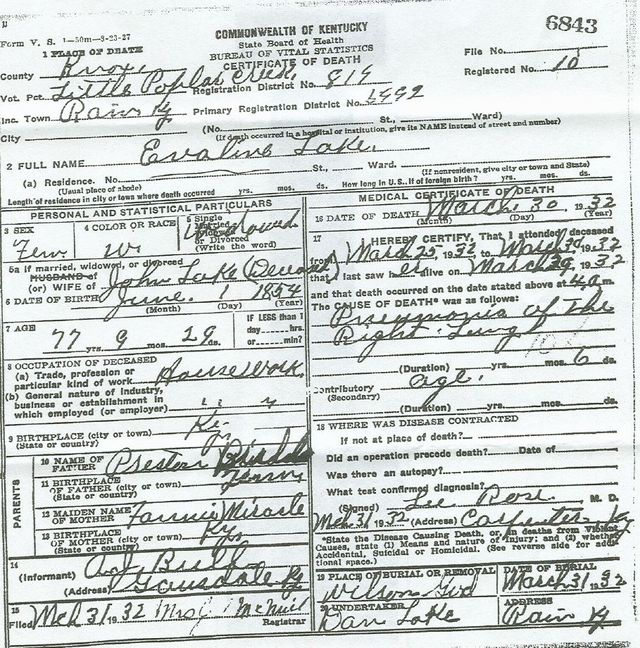 6843
Form V. S. 1—50m—8-23-27
COMMONWEALTH OF KENTUCKY
State Board of Health
BUREAU OF VITAL STATISTICS
CERTIFICATE OF DEATH
1 PLACE OF DEATH
County Knox
File No. 1
Registered No. 10
Vot. Pct. Little Poplar Creek Registration District No. 819
Inc. Town Rain Ky. Primary Registration District No.
City (No. St., Ward)
(If death occurred in a hospital or institution, give its NAME instead of street and number)
2 FULL NAME Evaline Lake.
(a) Residence. No. St., Ward.
(Usual place of abode) (If nonresident, give city or town and State)
Length of residence in city or town where death occurred yrs. mos. ds. How long in U.S., if of foreign birth? yrs. mos. ds.
PERSONAL AND STATISTICAL PARTICULARS
3 SEX Fem
4 COLOR OR RACE W.
5 Single Married Widowed or Divorced (Write the word) Widowed
5a If married, widowed, or divorced
HUSBAND of
(or) WIFE of John Lake Deceased
6 DATE OF BIRTH June 1 1854
(Month) (Day) (Year)
7 AGE 77 yrs. 9 mos. 29 ds.
IF LESS than 1 day hrs. or min?
8 OCCUPATION OF DECEASED
(a) Trade, profession or particular kind of work House Work
(b) General nature of industry, business or establishment in which employed (or employer) " "
9 BIRTHPLACE (city or town) Ky.
(State or country)
PARENTS
10 NAME OF FATHER Preston
11 BIRTHPLACE OF FATHER (city or town) Tenn
(State or country)
12 MAIDEN NAME OF MOTHER Fannie Miracle
13 BIRTHPLACE OF MOTHER (city or town) Ky.
(State or country)
14
(Informant) A J
(Address) Gausdale Ky
15
Filed Mch 31 1932 Mrs J McNeil Registrar
MEDICAL CERTIFICATE OF DEATH
16 DATE OF DEATH March 30 1932
(Month) (Day) (Year)
17 I HEREBY CERTIFY, That I attended deceased
from March 25, 1932 to March 30 1932
that I last saw her alive on March 29, 1932
and that death occurred on the date stated above at 4 a m.
The CAUSE OF DEATH* was as follows:
Pneumonia of The
Right Lungh
(Duration) yrs. mos. 6 ds.
Contributory age.
(Secondary)
(Duration) yrs. mos. ds.
18 WHERE WAS DISEASE CONTRACTED
If not at place of death?
Did an operation precede death? Date of
Was there an autopsy?
What test confirmed diagnosis?
(Signed) Lee Rose M. D.
Mch 31 1932 (Address) Carpenter Ky
*State the Disease Causing Death, or, in deaths from Violent
Causes, state (1) Means and nature of Injury; and (2) whether
Accidental, Suicidal or Homicidal. (See reverse side for addi
tional space.)
19 PLACE OF BURIAL OR REMOVAL Wilson Gvd
DATE OF BURIAL March 31 1932
20 UNDERTAKER Dan Lake
ADDRESS Rain Ky